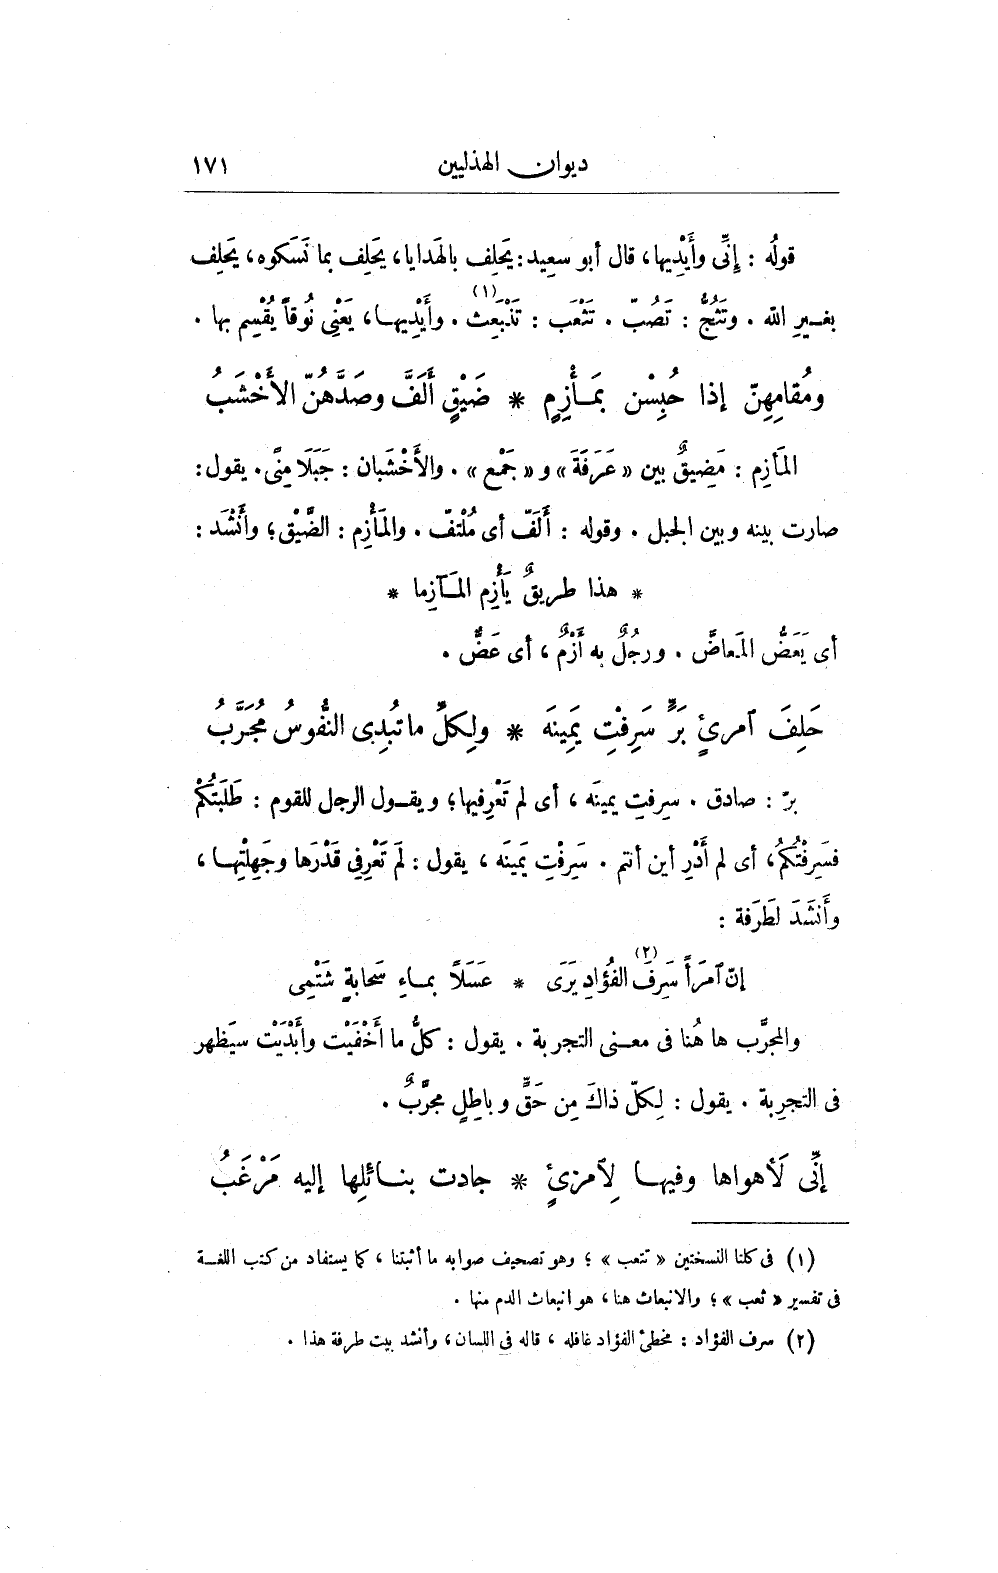 ديوان الهذليين ١٧١
قولُه : إنِّى وأَيْدِيها، قال أبو سعِيد: يَحلِف بالهَدايا، يحَلِف بما نَسَكوه، يَحلِف
بغيرِ الله . وتَثُجُّ : تَصُبّ . تَثْعَب : تَنْبَعِث (١) . وأَيْدِيها، يَعْنِى نُوقاً يُقْسِم بها .
ومُقامِهِنّ إذا حُبِسْن بمَأْزِمٍ * ضَيْقٍ أَلَفَّ وصَدَّهُنّ الأَخْشَبُ
المَأزِم : مَضِيقٌ بين «عَرَفَةَ» و «جَمْع» . والأَخْشَبان : جَبَلَا مِنًى. يقول:
صارت بينه وبين الجبل . وقوله : أَلَفّ أى مُلْتفّ . والمَأْزِم : الضَّيْق؛ وأَنْشَد :
* هذا طريقٌ يَأْزِم المَآزِما *
أى يَعَضُّ المَعاضَّ . ورجُلٌ به أَزْمٌ ، أى عَضٌّ .
حَلِفَ آمرئٍ بَرٍّ سَرِفْتِ يَمِينَه * ولِكلِّ ما تُبدِى النُّفُوسُ مُجَرَّبُ
برّ : صادق . سرِفتِ يمينَه ، أى لم تَعْرِفيها؛ ويقول الرجل للقوم : طَلَبَتُكُمْ
فسَرِفْتُكُمْ، أى لم أَدْرِ أين أنتم . سَرِفْتِ يَمِينَه ، يقول : لَم تَعْرِفِى قَدْرَها وجَهِلْتِها ،
وأَنشَدَ لطَرَفة :
إنّ آمرَأً سَرِفَ الفُؤادِ (٢) يَرَى * عَسَلاً بماءِ سَحابةٍ شَتْمِى
والمجرَّب ها هُنا فى معنى التجربة . يقول : كلُّ ما أَخْفَيْت وأَبْدَيْت سيَظهر
فى التجرِبة . يقول : لِكلّ ذاكَ مِن حَقٍّ وباطِلٍ مجرَّبٌ .
إنِّى لَأهواها وفيها لِآمرئٍ * جادت بنائلِها إليه مَرْغَبُ
(١) فى كلتا النسختين «تتعب» ؛ وهو تصحيف صوابه ما أثبتنا ، كما يستفاد من كتب اللغة
فى تفسير «ثعب»؛ والانبعاث هنا، هو انبعاث الدم منها .
(٢) سرف الفؤاد : مخطئ الفؤاد غافله ، قاله فى اللسان ، وأنشد بيت طرفة هذا .